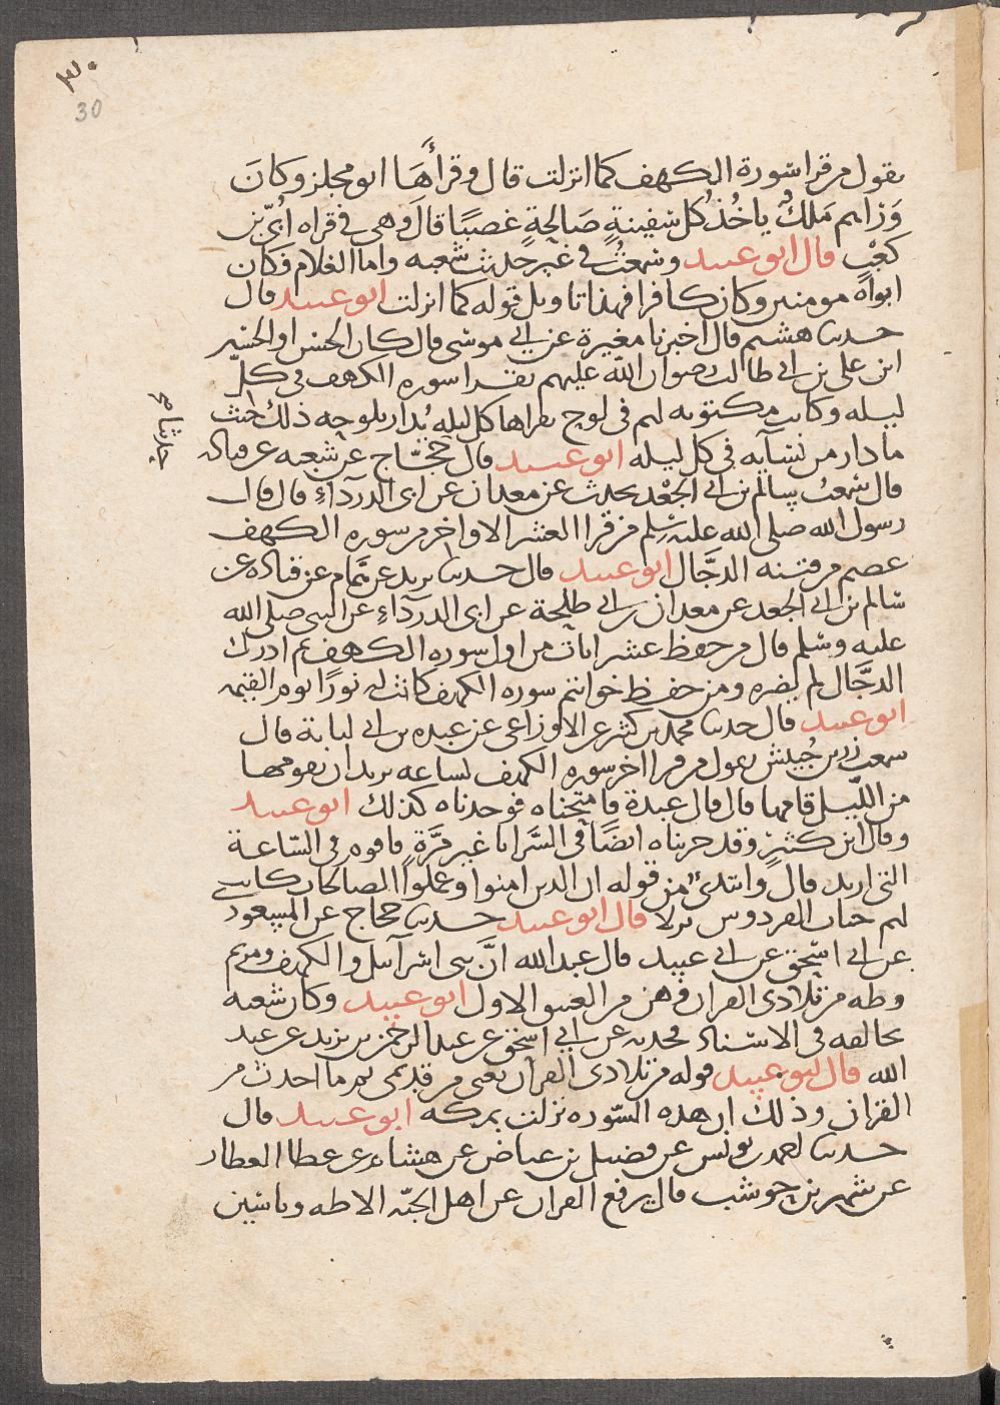 ٣٠
30
يقول من قرا سورة الكهف كما انزلت قال وقرأها ابو مجلز وكان
وراهم ملك ياخذ كل سفينة صالحة غصبا قال وهي في قراه أبي بن
كعب قال ابو عبيد وسمعت في غير حديث شعبه واما الغلام فكان
ابواه مومنين وكان كافرا فهذا تاويل قوله كما انزلت ابو عبيد قال
حدثنا هشيم قال اخبرنا مغيرة عن ابي موسى قال كان الحسن او الحسين
ابن علي بن ابي طالب رضوان الله عليهم يقرا سوره الكهف في كل
ليله وكانت مكتوبه لهم في لوح يقراها كل ليله يدار بلوحه ذلك حيث
ما دار من نسآيه في كل ليله ابو عبيد قال حجاج عن شعبه عن قتاده
حدثنا صح
قال سمعت سالم بن ابي الجعد يحدث عن معدان عن ابي الدرداء قال قال
رسول الله صلى الله عليه وسلم من قرا العشر الاواخر من سوره الكهف
عصم من فتنه الدجال ابو عبيد قال حدثنا يزيد عن همام عن قتاده عن
سالم بن ابي الجعد عن معدان بن ابي طلحة عن ابي الدرداء عن النبي صلى الله
عليه وسلم قال من حفظ عشر ايات من اول سوره الكهف ثم ادرك
الدجال لم يضره ومن حفظ خواتم سوره الكهف كانت له نورا يوم القيمه
ابو عبيد قال حدثنا محمد بن كثير عن الاوزاعي عن عبده بن ابي لبابة قال
سمعت زر بن حبيش يقول من قرا اخر سوره الكهف لساعه يريد ان يقومها
من الليل قامها قال قال عبدة فامتحناه فوجدناه كذلك ابو عبيد
وقال ابن كثير وقد جربناه ايضا في السرايا غير مرة فاقوم في الساعة
التي اريد قال وابتدئ من قوله ان الدين امنوا وعملوا الصالحات كانت
لهم جنات الفردوس نزلا قال ابو عبيد حدثنا حجاج عن المسعودي
عن ابي اسحق عن ابي عبيد قال عبد الله ان بني اسرآئيل والكهف ومريم
وطه من تلادي القران وهن من العتيق الاول ابو عبيد وكان شعبه
يخالفه في الاسناد يحدثه عن ابي اسحق عن عبد الرحمن بن يزيد عن عبد
الله قال ابو عبيد قوله من تلادي القران يعني من قديمي يريد ما احدث من
القران وذلك ان هذه السوره نزلت بمكه ابو عبيد قال
حدثنا احمد بن يونس عن فضيل بن عياض عن هشام عن عطا العطار
عن شهر بن حوشب قال يرفع القران عن اهل الجنه الا طه وياسين